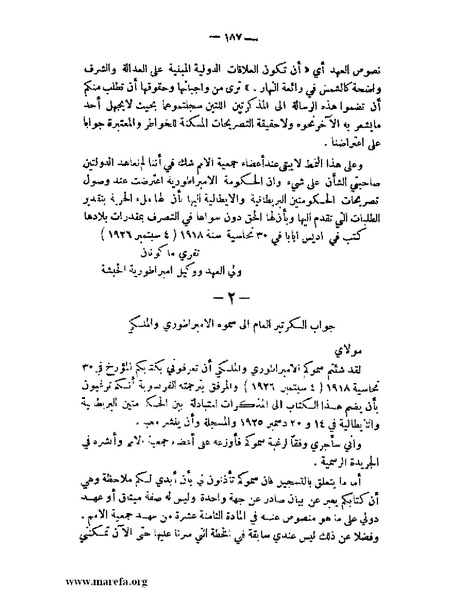 — ١٨٧ —
نصوص العهد أي « أن تكون العلاقات الدولية المبنية على العدالة والشرف
واضحة كالشمس في رائعة النهار . » ترى من واجباتها وحقوقها أن تطلب منكم
أن تضموا هذه الرسالة الى المذكرتين اللتين سجلتموهما بحيث لايجهل أحد
مايشعر به الآخر نحوه ولاحقيقة التصريحات المسكنة للخواطر والمعتبرة جوابا
على اعتراضنا .
وعلى هذا النمط لايبقى عند أعضاء جمعية الامم شك في أننا لم نعاهد الدولتين
صاحبتي الشأن على شيء وان الحكومة الامبراطورية اعترضت عند وصول
تصريحات الحكومتين البريطانية والايطالية اليها بأن لها ملء الحرية بتقدير
الطلبات التي تقدم اليها وبأن لها الحق دون سواها في التصرف بمقدرات بلادها
كتب في اديس ابابا في ٣٠ نحاسية سنة ١٩١٨ ( ٤ سبتمبر ١٩٢٦ )
تفري ماكونان
ولي العهد ووكيل امبراطورية الحبشة
— ٢ —
جواب السكرتير العام الى سموه الامبراطوري والملكي
مولاي
لقد شئتم سموكم الامبراطوري والملكي أن تعرفوني بكتابكم المؤرخ في ٣٠
نحاسية ١٩١٨ ( ٤ سبتمبر ١٩٢٦ ) والمرفق بترجمته الفرنسوية أنكم ترغبون
بأن يضم هذا الكتاب الى المذكرات المتبادلة بين الحكومتين البريطانية
والايطالية في ١٤ و ٢٠ دسمبر ١٩٢٥ والمسجلة وأن ينشر معها .
واني سأجري وفقا لرغبة سموكم فأوزعه على أعضاء جمعية الامم وأنشره في
الجريدة الرسمية .
أما ما يتعلق بالتسجيل فان سموكم تأذنون لي بأن أبدي لكم ملاحظة وهي
أن كتابكم يعبر عن بيان صادر عن جهة واحدة وليس له صفة ميثاق أو عهد
دولي على ما هو منصوص عنه في المادة الثامنة عشرة من عهد جمعية الامم .
وفضلا عن ذلك ليس عندي سابقة في الخطة التي سرنا عليها حتى الآن تمكنني
www.marefa.org